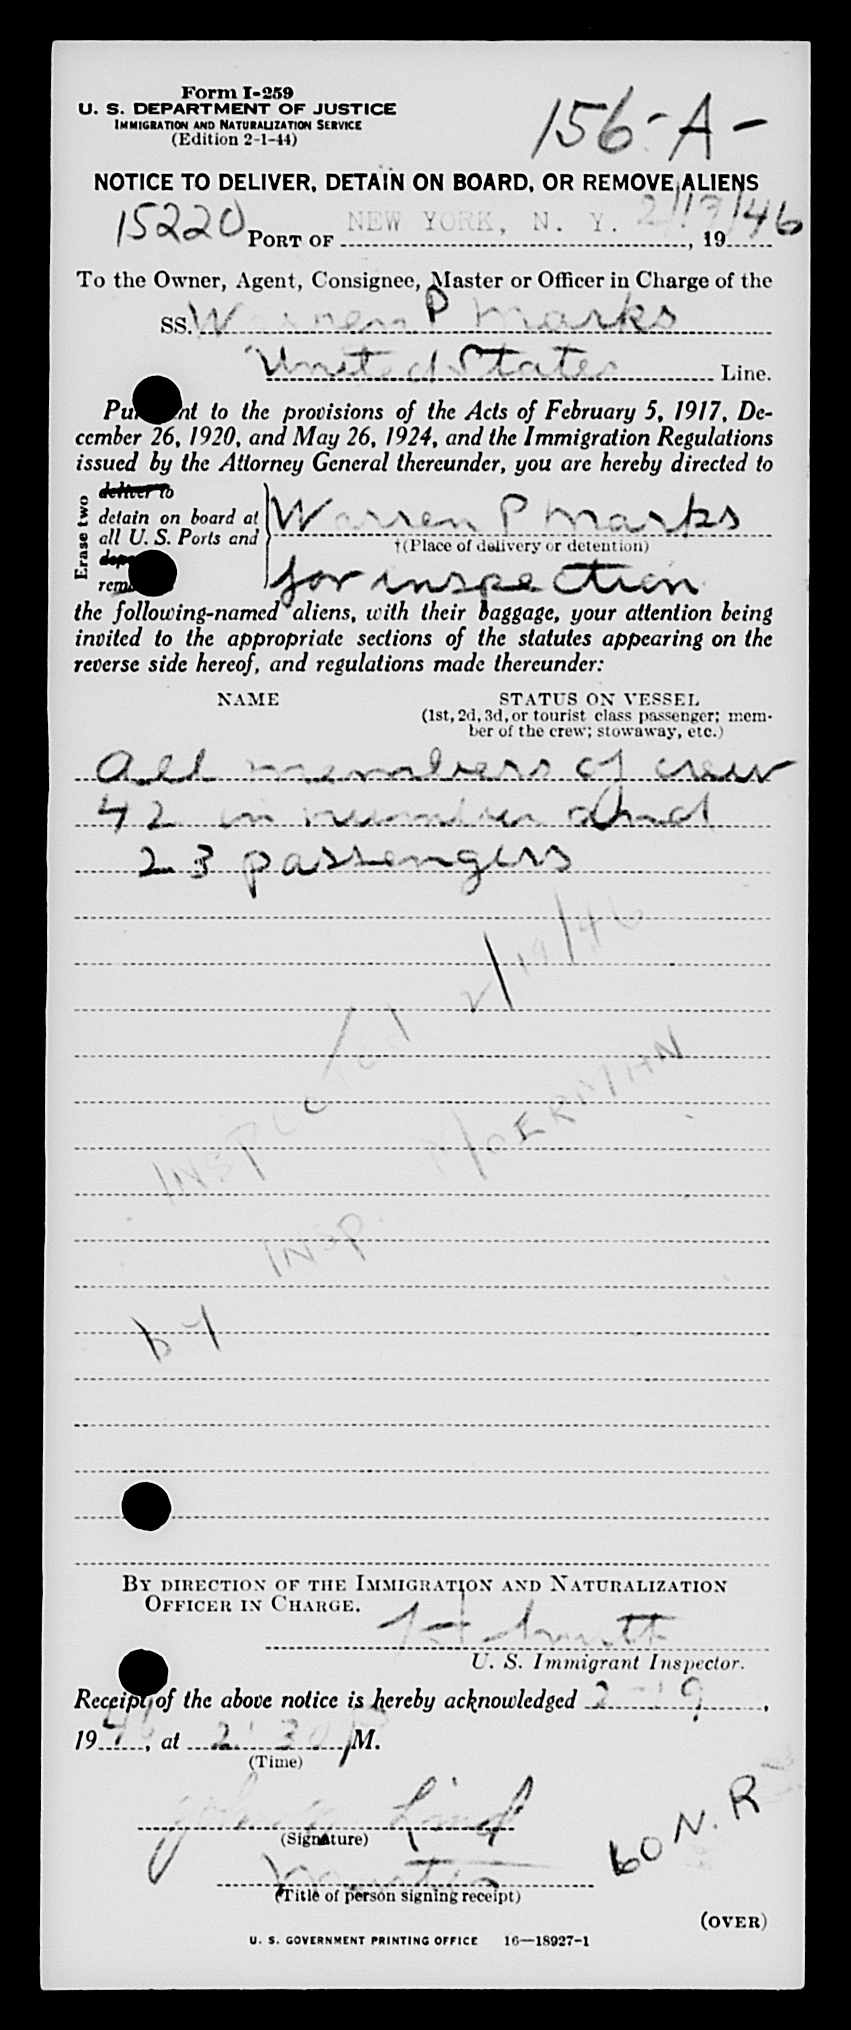 Form I-259
U. S. DEPARTMENT OF JUSTICE
IMMIGRATION AND NATURALIZATION SERVICE
(Edition 2-1-44)
156-A-
NOTICE TO DELIVER, DETAIN ON BOARD, OR REMOVE ALIENS
15220 PORT OF NEW YORK, N. Y. 2/19/46, 19
To the Owner, Agent, Consignee, Master or Officer in Charge of the
SS. Warren P Marks
United States Line.
Pu nt to the provisions of the Acts of February 5, 1917, De-
cember 26, 1920, and May 26, 1924, and the Immigration Regulations
issued by the Attorney General thereunder, you are hereby directed to
Erase two
deliver to
detain on board at
all U. S. Ports and
Warren P Marks
†(Place of delivery or detention)
for inspection
the following-named aliens, with their baggage, your attention being
invited to the appropriate sections of the statutes appearing on the
reverse side hereof, and regulations made thereunder:
NAME STATUS ON VESSEL
(1st, 2d, 3d, or tourist class passenger; mem-
ber of the crew; stowaway, etc.)
All members of crew
42 in number and
23 passengers
INSPected 2/19/46
by INSP. MOERMAN
BY DIRECTION OF THE IMMIGRATION AND NATURALIZATION
OFFICER IN CHARGE.
U. S. Immigrant Inspector.
Receipt of the above notice is hereby acknowledged 2-19,
1946, at 2:30 P M.
(Time)
(Signature)
Master
(Title of person signing receipt)
60 N. R
(OVER)
U. S. GOVERNMENT PRINTING OFFICE 16—18927-1